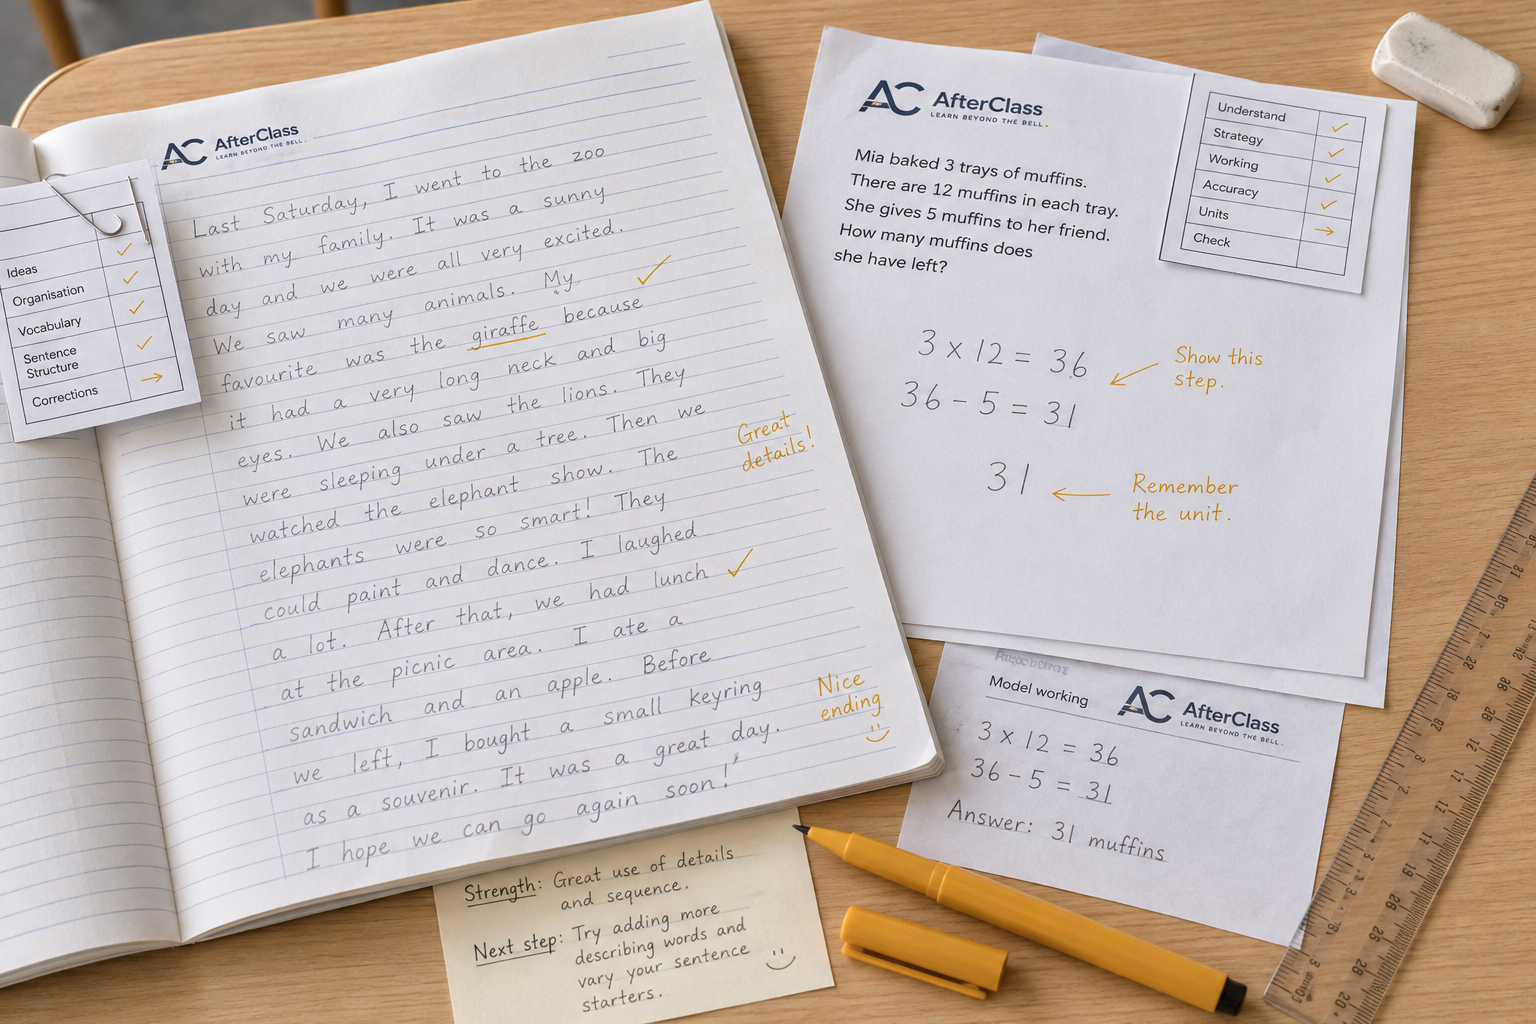 AC AfterClass
LEARN BEYOND THE BELL.
Last Saturday, I went to the zoo
with my family. It was a sunny
day and we were all very excited.
We saw many animals. My
favourite was the giraffe because
it had a very long neck and big
eyes. We also saw the lions. They
were sleeping under a tree. Then we
watched the elephant show. The
elephants were so smart! They
could paint and dance. I laughed
a lot. After that, we had lunch
at the picnic area. I ate a
sandwich and an apple. Before
we left, I bought a small keyring
as a souvenir. It was a great day.
I hope we can go again soon!
Great
details!
Nice
ending
Ideas
Organisation
Vocabulary
Sentence
Structure
Corrections
Strength: Great use of details
and sequence.
Next step: Try adding more
describing words and
vary your sentence
starters.
AC AfterClass
LEARN BEYOND THE BELL.
Mia baked 3 trays of muffins.
There are 12 muffins in each tray.
She gives 5 muffins to her friend.
How many muffins does
she have left?
Understand
Strategy
Working
Accuracy
Units
Check
3 × 12 = 36
36 - 5 = 31
31
Show this
step.
Remember
the unit.
Model working
AC AfterClass
LEARN BEYOND THE BELL.
3 × 12 = 36
36 - 5 = 31
Answer: 31 muffins